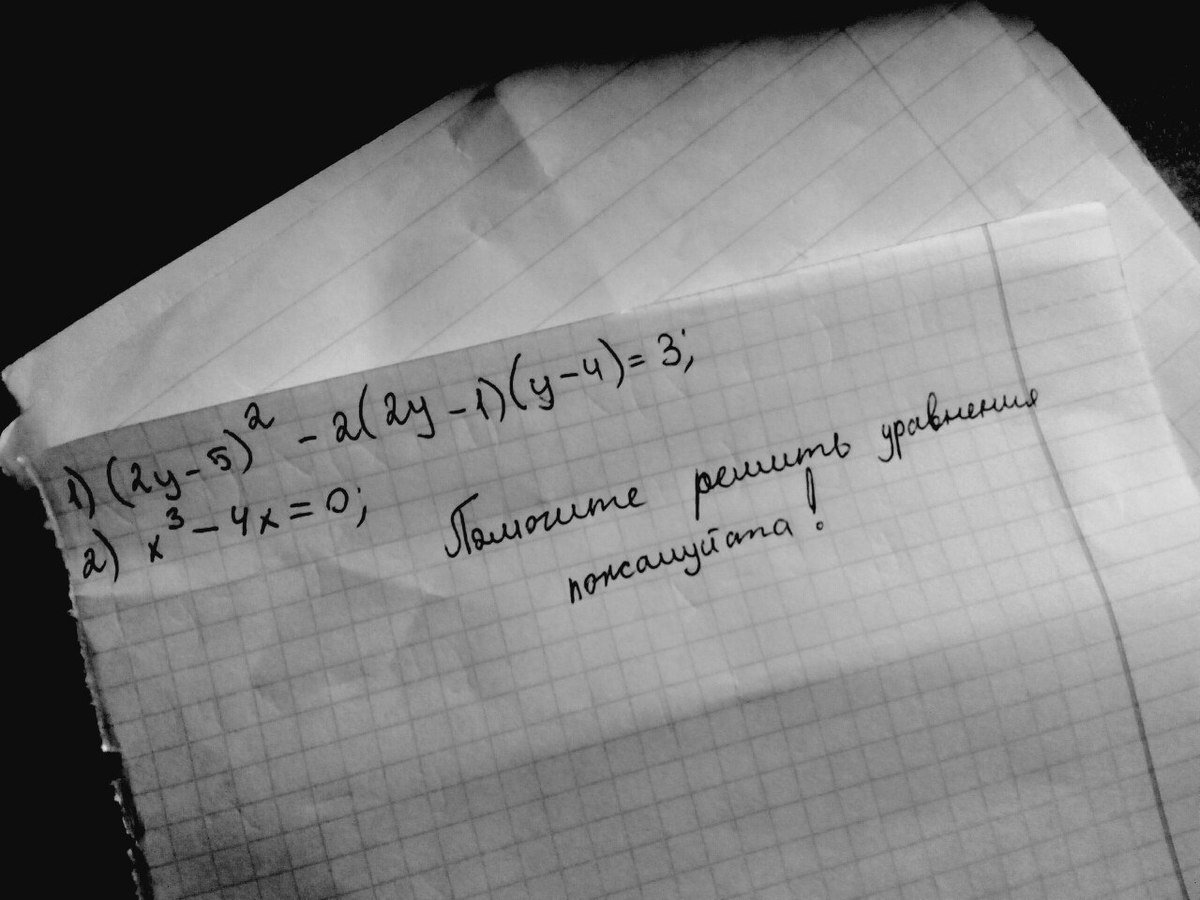 1) (2y - 5)² - 2(2y - 1)(y - 4) = 3;
2) x³ - 4x = 0;
Помогите решить уравнения
пожалуйста!